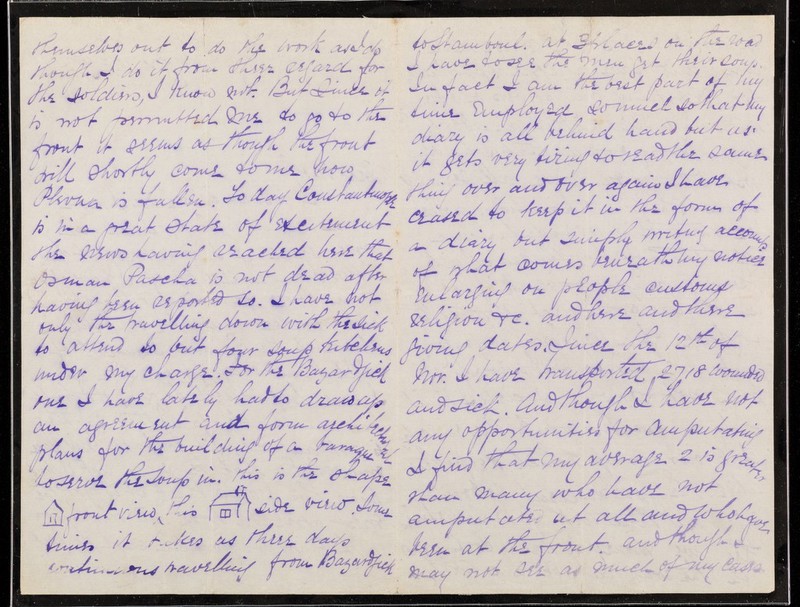 themselves out to do the work and up
though I do it from sheer regard for
the soldiers, I know not. But Since it
is not permitted me to go to the
front it seems as though the front
will shortly come to me now
Plevna is fallen. To day Constantinople
is in a great state of excitement
the news having reached here that
Osman Pascha is not dead after
having been reported so. I have not
only the travelling down with the sick
to attend to but four soup kitchens
under my charge. For the Bazardjick
one I have lately had to draw up
an agreement and form architectural
plans for the building of a baraque
to serve the soup in. this is the shape
front view, this side view. Some
times it takes as three days
continuous travelling from Bazardjick
to Stamboul. at 3 places on the road
I have to see the men get their soup.
In fact I am the best part of my
time Employed so much so that my
diary is all behind hand but as
it gets very tiring to read the same
thing over and over again I have
ceased to keep it in the form of
a diary but simply writing accounts
of what comes beneath my notice
Enlarging on people customs
religion &c. and here and there
giving dates. Since the 12th of
Nov. I have transported 2718 wounded
and sick. And though I have not
any opportunities for amputating
I find that my average 2 is greater
than many who have not
amputated at all and who have
been at the front. and though I
may not see as much of my cases